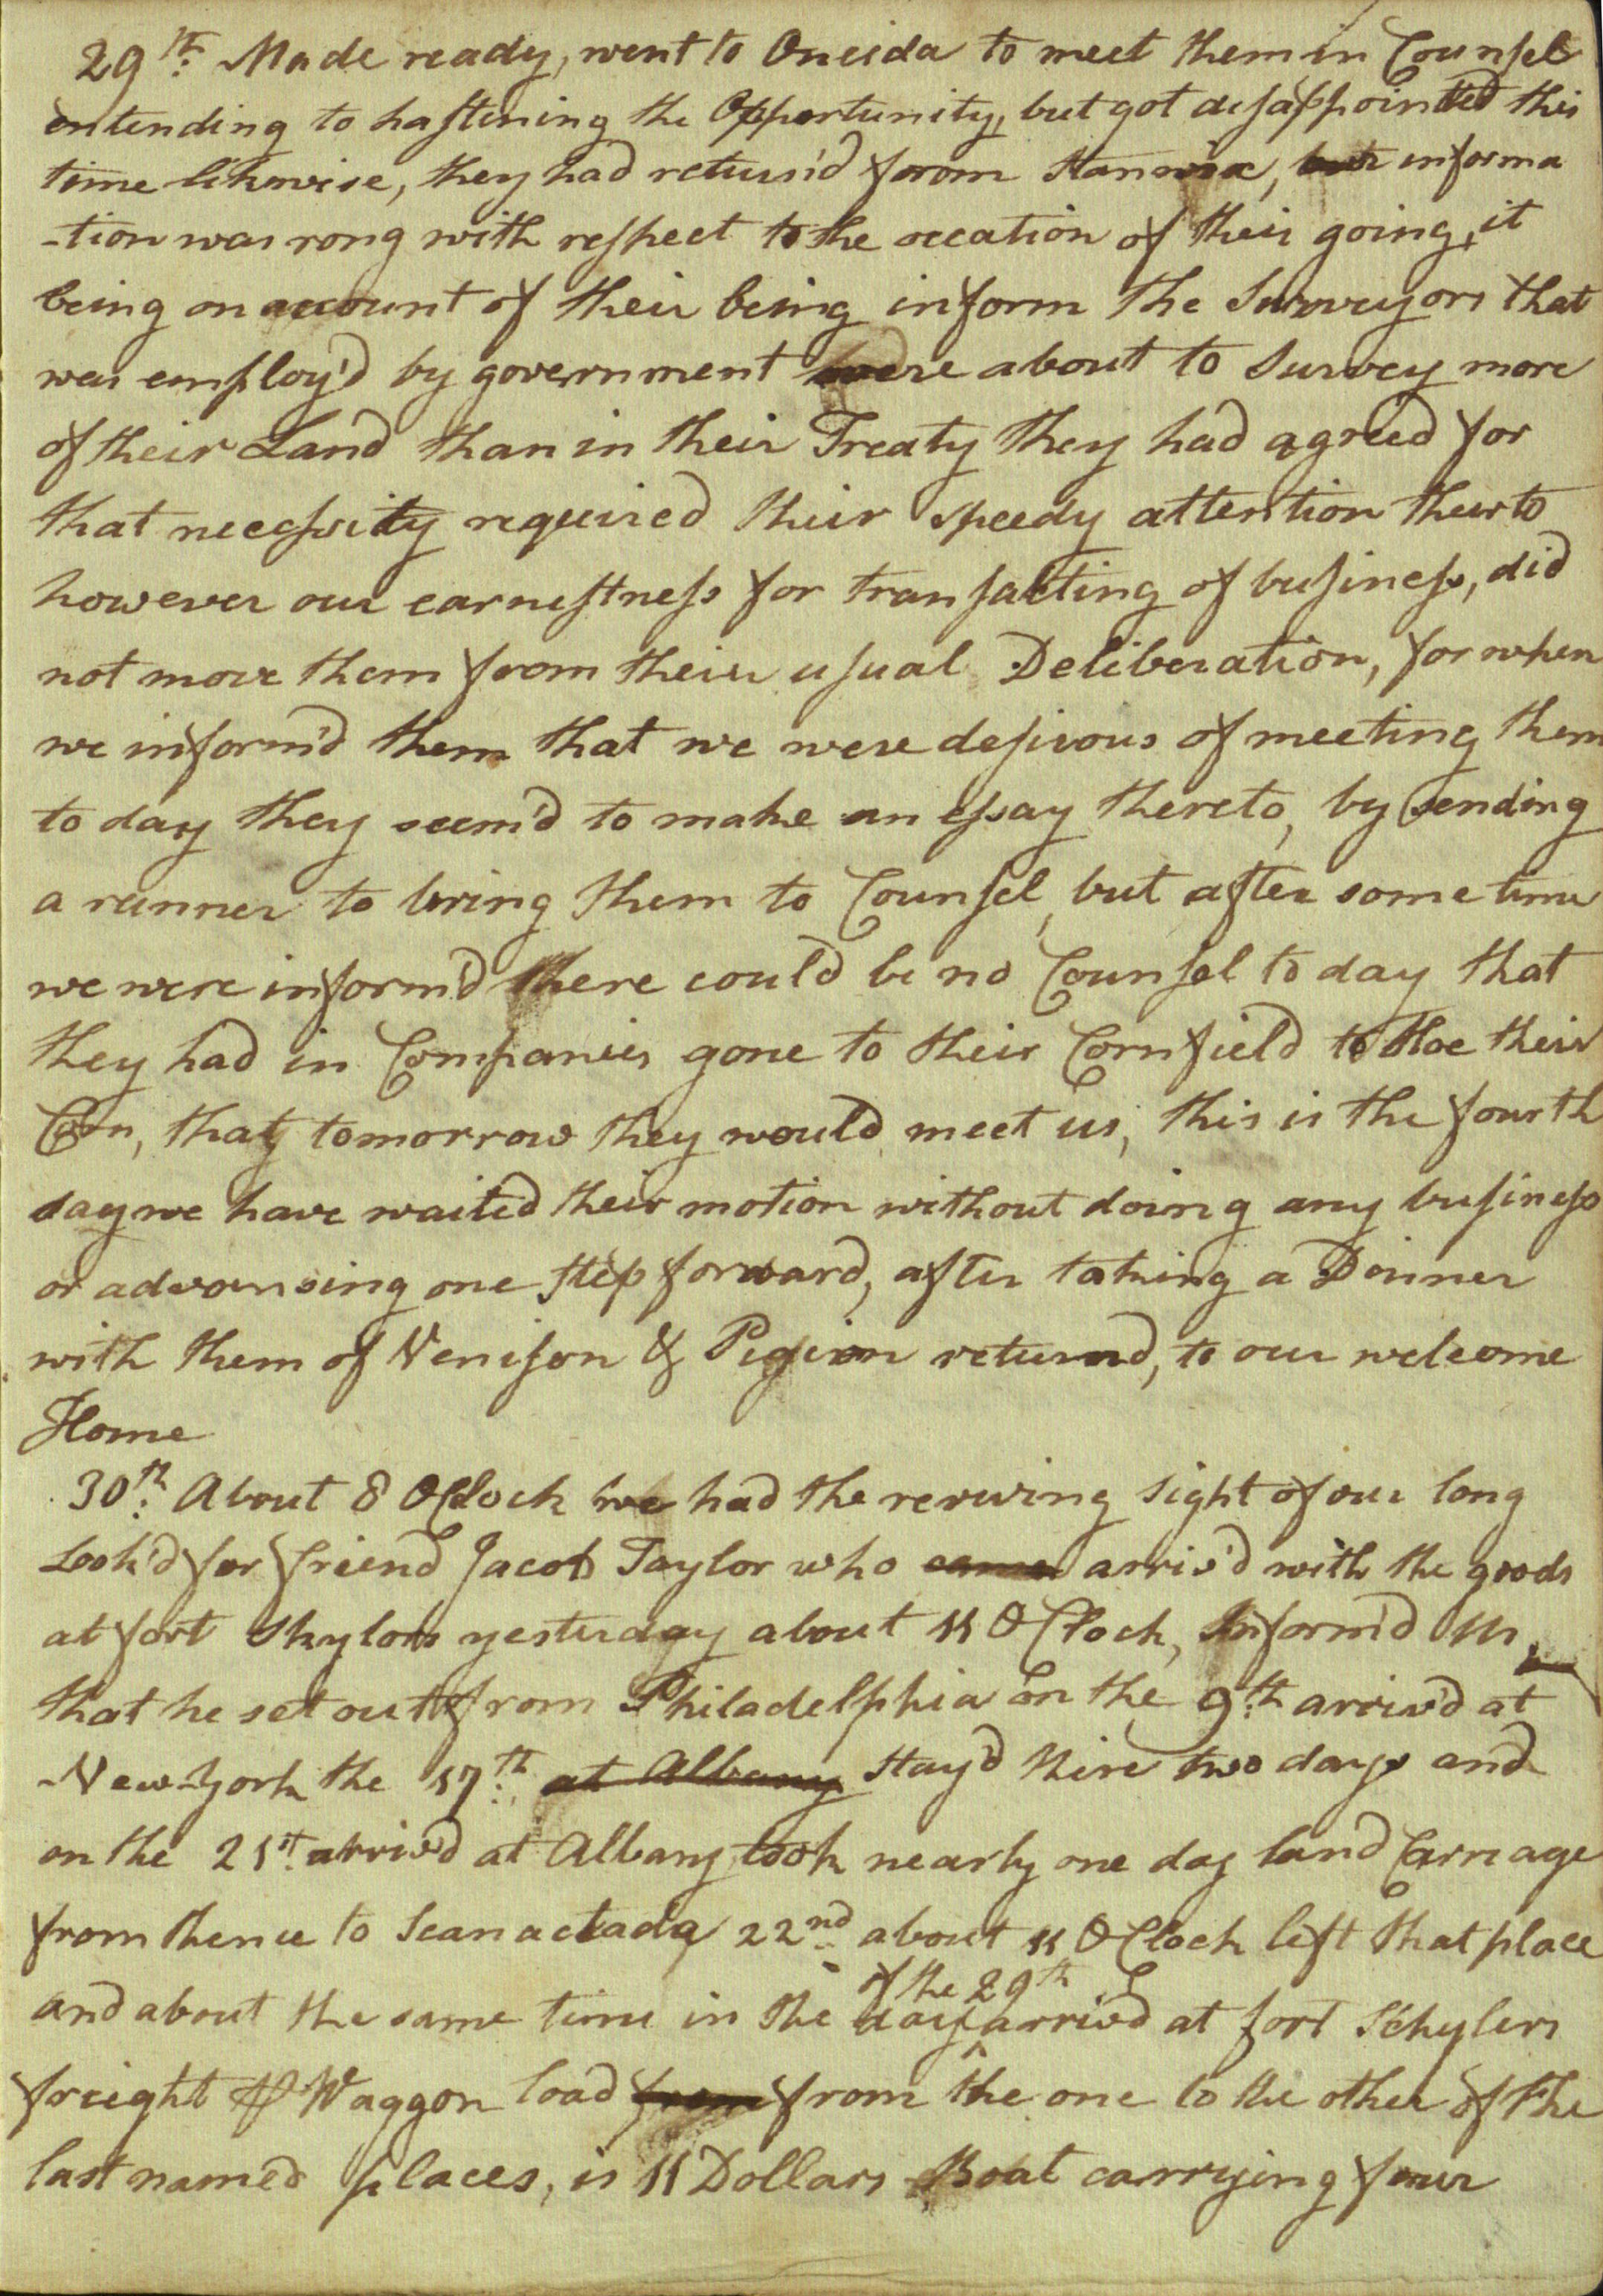 29th. Made ready, went to Oneida to meet them in Counsel
entending to hastening the Opportunity, but got disappointed this
time likewise, they had return'd from Stanwix, our informa
-tion was rong with respect to the occation of their going, it
being on account of their being inform the Surveyors that
was employ'd by government were about to Survey more
of their Land than in their Treaty they had agreed for
that necessity required their speedy attention thereto
however our earnestness for transacting of business, did
not move them from their usual Deliberation, for when
we inform'd them that we were desirous of meeting them
to day they seem'd to make an essay thereto, by sending
a runner to bring them to Counsel, but after some time
we were inform'd there could be no Counsel to day that
they had in Companies gone to their Cornfield to Hoe their
Corn, that tomorrow they would meet us, this is the fourth
day we have waited their motion without doing any business
or advansing one step forward, after taking a Dinner
with them of Venison & Pigion returnd, to our welcome
Home
30th. About 8 OClock we had the reviving sight of our long
Look'd for friend Jacob Taylor who came arriv'd with the goods
at fort Skylors yesterday about 11 OClock, Inform'd us
that he set out from Philadelphia on the 9th. arriv'd at
New-York the 17th. at Albany stay'd there two days and
on the 21st. arriv'd at Albany took nearly one day land Carriage
from thence to Scanactada 22nd about 11 OClock left that place
of the 29th
and about the same time in the day arriv'd at fort Schylers
freight of Waggon load from from the one to the other of the
last named places, is 11 Dollars Boat carrying four